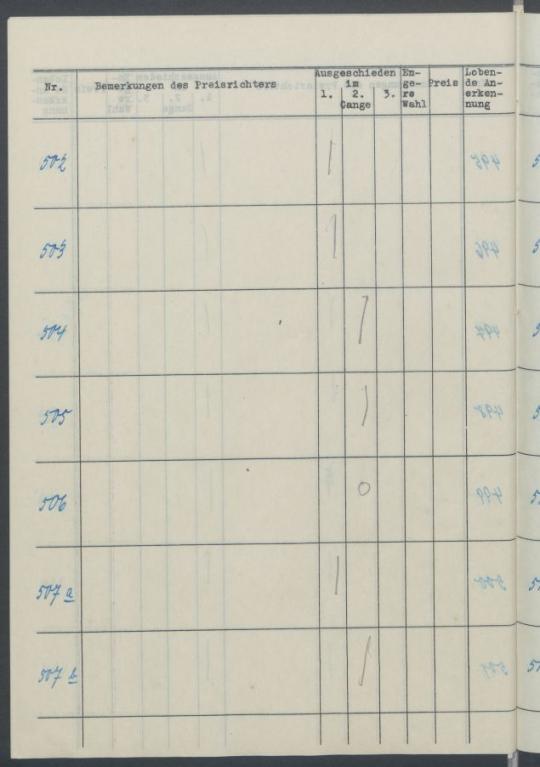 Nr. Bemerkungen des Preisrichters Ausgeschieden im 1. 2. 3. Gange En-ge-re Wahl Preis Loben-de An-erken-nung
502 |
503 |
504 |
505 |
506 0
507 a |
507 b |